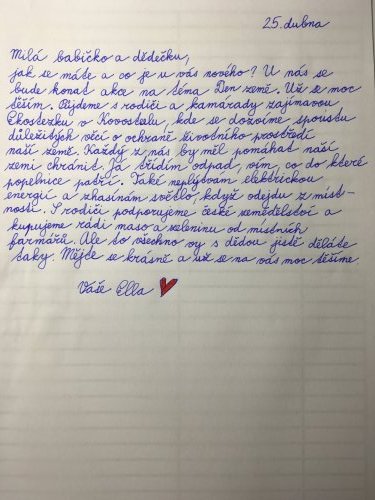 25. dubna
Milá babičko a dědečku,
jak se máte a co je u vás nového? U nás se
bude konat akce na téma Den země. Už se moc
těším. Půjdeme s rodiči a kamarády zajímavou
Ekostezku v Kovostalu, kde se dozvíme spoustu
důležitých věcí o ochraně životního prostředí
naší země. Každý z nás by měl pomáhat naší
zemi chránit. Já třídím odpad, vím, co do které
popelnice patří. Také neplýtvám elektrickou
energií a zhasínám světlo, když odejdu z míst-
nosti. I rodiči podporujeme české zemědělství a
kupujeme rádi maso a zeleninu od místních
farmářů. Ale to všechno vy s dědou jistě děláte
taky. Mějte se krásně a už se na vás moc těšíme.
Vaše Ella